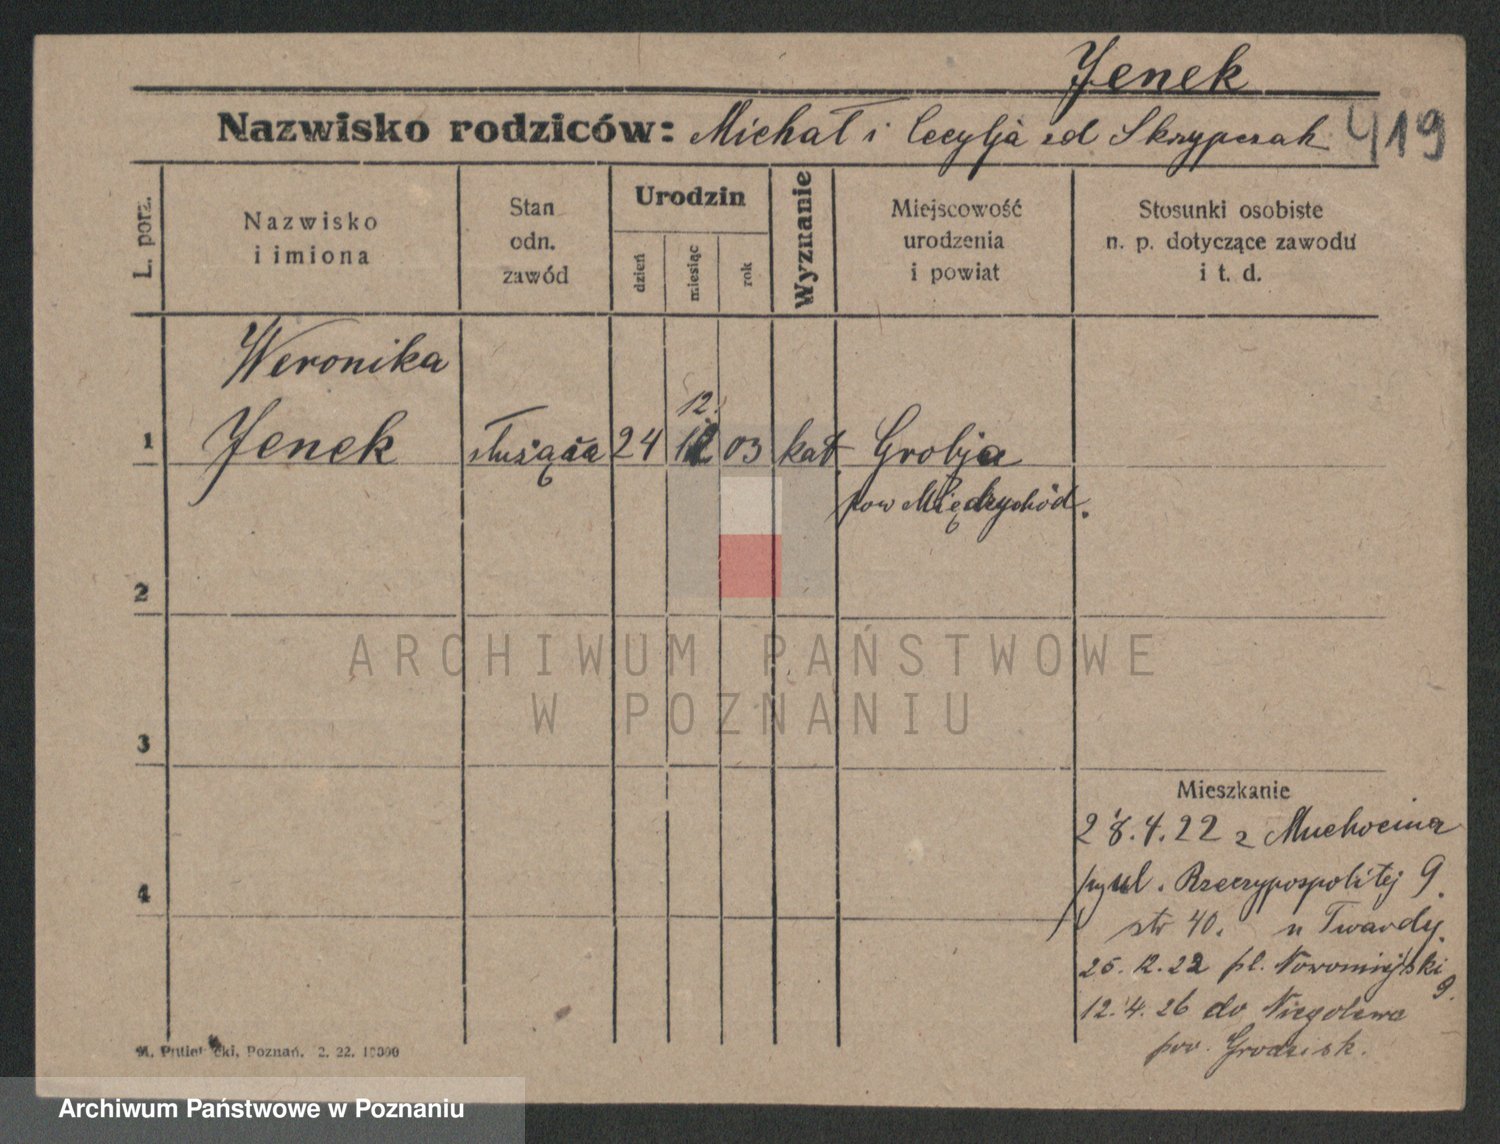 Jenek
Nazwisko rodziców: Michał i Cecylja zd Skrzypczak 419
L. porz.
Nazwisko
i imiona
Stan
odn.
zawód
Urodzin
dzień
miesiąc
rok
Wyznanie
Miejscowość
urodzenia
i powiat
Stosunki osobiste
n. p. dotyczące zawodu
i t. d.
Weronika
12.
1 Jenek służąca 24 12 03 kat. Grobja
pow Międzychód.
2
ARCHIWUM PAŃSTWOWE
W POZNANIU
3
Mieszkanie
28.4.22 z Muchocina
ul. Rzeczypospolitej 9.
str 40. u Twardy.
25.12.22 pl. Nowomiejski
9.
12.4.26 do Niegolewa
pow. Grodzisk.
4
M. Putiatycki, Poznań. 2. 22. 10000
Archiwum Państwowe w Poznaniu